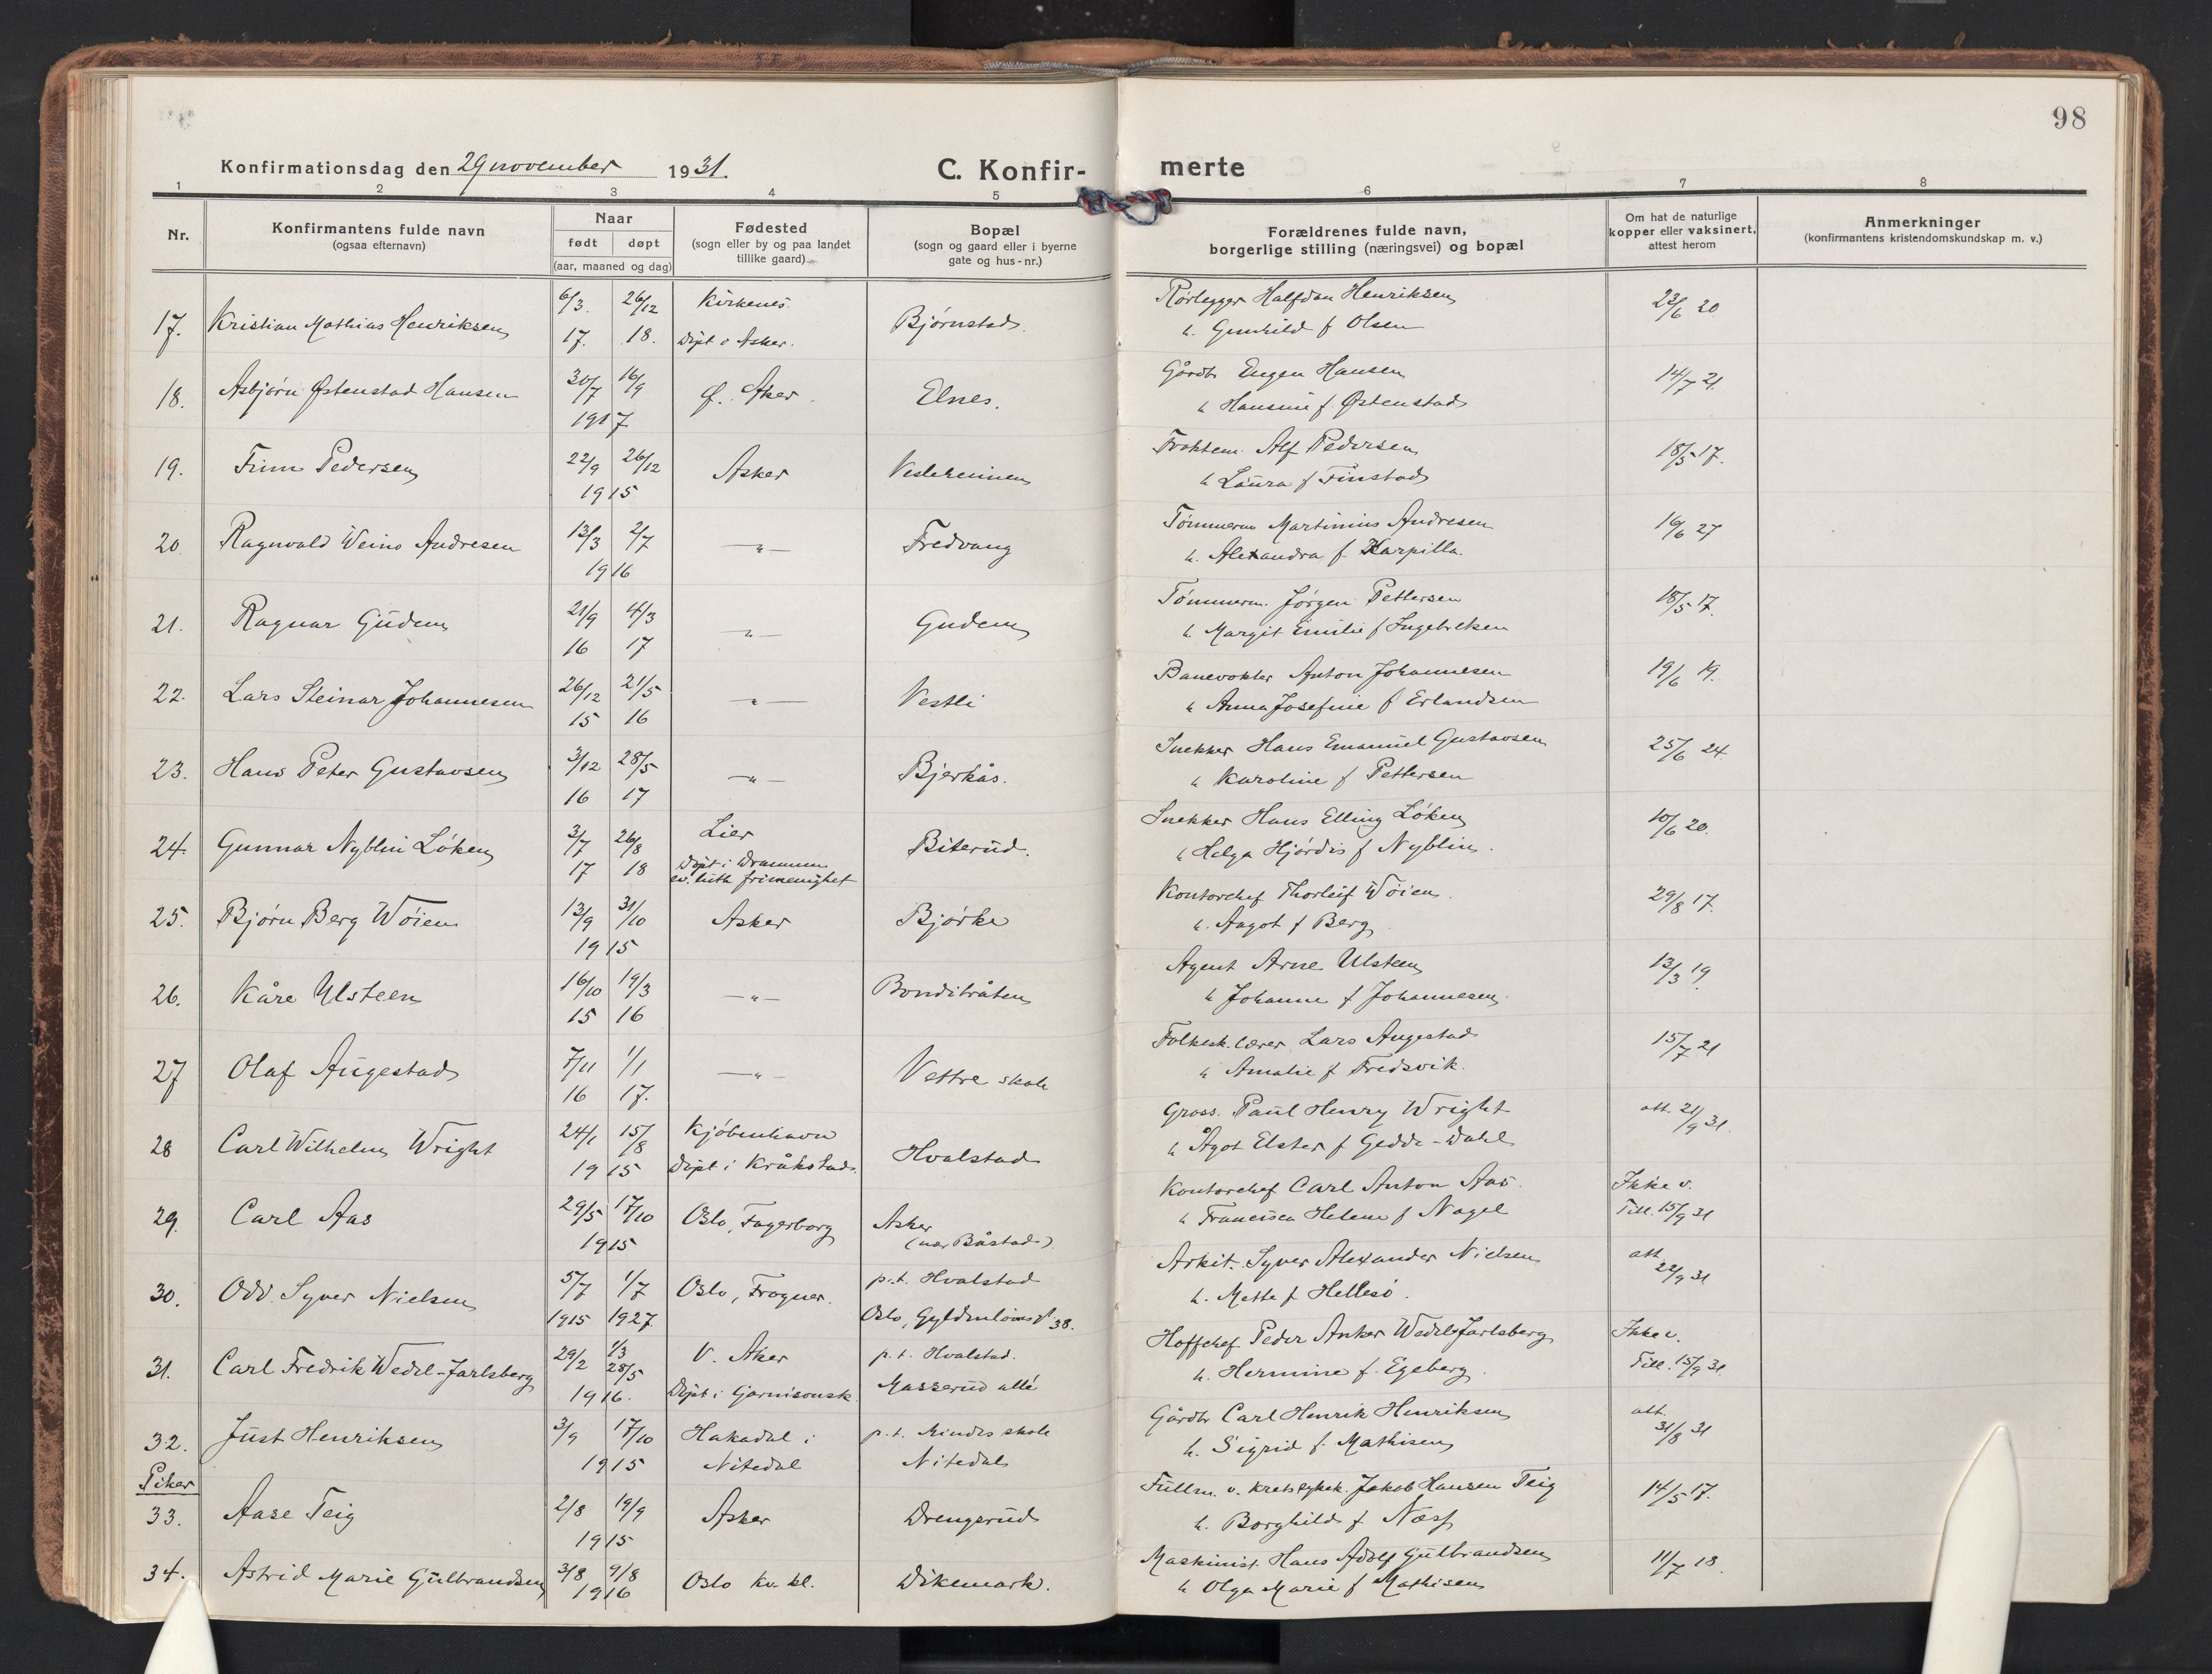 98
Konfirmationsdag den 29 november 1931.
C. Konfirmerte
1 2 3 4 5 6 7 8
Nr.
Konfirmantens fulde navn
(ogsaa efternavn)
Naar
født døpt
(aar, maaned og dag)
Fødested
(sogn eller by og paa landet
tillike gaard)
Bopæl
(sogn og gaard eller i byerne
gate og hus-nr.)
Forældrenes fulde navn,
borgerlige stilling (næringsvei) og bopæl
Om hat de naturlige
kopper eller vaksinert,
attest herom
Anmerkninger
(konfirmantens kristendomskundskap m. v.)
17. Kristian Mathias Henriksen 6/3 17. 26/12 18. Kirkenes Døpt i Asker. Bjørnstad. Rørlegger Halfdan Henriksen h. Gunhild f Olsen 23/6 20
18. Asbjørn Østenstad Hansen 30/7 16/9 1917 Ø. Aker. Elnes. Gårdbr Eugen Hansen h Hansine f. Østenstad 14/7 21.
19. Finn Pedersen 22/9 26/12 1915 Asker Vestheimen Alf Pedersen h Laura f Finstad 18/5 17.
20 Ragnvald Weino Andresen 13/3 2/7 1916 —"— Fredvang Tømmerm Martinius Andresen h. Alexandra f Karpilla. 16/6 27
21. Ragnar Gudem 21/9 16 4/3 17 —"— Gudem Tømmerm. Jørgen Pettersen h. Margit Emilie f Ingebriktsen 18/5 17.
22. Lars Steinar Johannesen 26/12 15 21/5 16 —"— Vestli Banevokter Anton Johannesen h Anna Josefine f Erlandsen 19/6 19.
23. Hans Peter Gustavsen 3/12 16 28/5 17 —"— Bjerkås. Snekker Hans Emanuel Gustavsen h Karoline f Pettersen 25/6 24.
24. Gunnar Nyblin Løken 3/7 17 26/8 18 Lier Døpt i Drammen ev. luth frimenighet Biterud. Snekker Hans Elling Løken h Helga Hjørdis f Nyblin. 10/6 20.
25. Bjørn Berg Wøien 13/9 31/10 1915 Asker Bjørke Kontorchef Thorleif Wøien. h. Aagot f Berg. 29/8 17.
26. Kåre Ulsteen 16/10 15 19/3 16 —"— Bondibråten Agent Arne Ulsteen h Johanne f Johannesen. 13/3 19.
27 Olaf Augestad 7/11 16 1/1 17. —"— Vettre skole Folkesk. lærer Lars Augestad h Amalie f Fredsvik. 15/7 21
28 Carl Wilhelm Wright 24/1 15/8 1915 Kjøbenhavn Døpt i Kråkstad. Hvalstad Gross. Paul Henry Wright h Ågot Elster f Gedde-Dahl att. 21/9 31.
29. Carl Aas 29/5 17/10 1915 Oslo, Fagerborg Asker (nær Båstad) Kontorchef Carl Anton Aas. h Francisca Helene f Nagel Ikke v. Till. 15/9 31
30. Odd Syver Nielsen 5/7 1915 1/7 1927 Oslo, Frogner. p.t. Hvalstad Oslo, Gyldenløves gt 38. Arkit. Syver Alexander Nielsen h. Mette f Hellesø. att 22/9 31
31. Carl Fredrik Wedel-Jarlsberg 29/2 1/3 28/5 1916. V. Aker Døpt i Garnisonsk. p.t. Hvalstad. Masserud allé Hoffchef Peder Anker Wedel-Jarlsberg h. Hermine f. Egeberg. Ikke v. Till. 15/9 31.
32. Just Henriksen 3/9 17/10 1915 Hakadal i Nitedal p.t. skole Nitedal Gårdbr Carl Henrik Henriksen h. Sigrid f. Mathisen att. 31/8 31
Piker
33. Aase Teig 2/8 19/9 1915 Asker Drengsrud Fullm. v. Jakob Hansen Teig h. Borghild f Næss 14/5 17.
34. Astrid Marie Gulbrandsen 3/8 9/8 1916 Oslo kv. kl. Dikemark. Maskinist. Hans Adolf Gulbrandsen h Olga Marie f Mathisen 11/7 18.